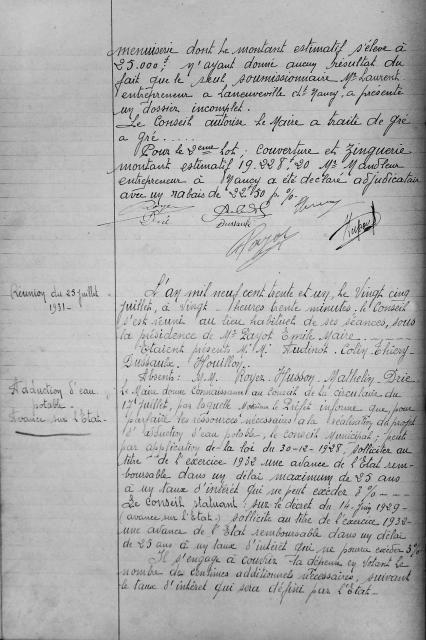 menuiserie dont le montant estimatif s'élève à
25.000f n'ayant donné aucun résultat du
fait que le seul soumissionnaire Mr Laurent
entrepreneur à Laneuveville dt Nancy, a présenté
un dossier incomplet.
Le Conseil autorise le Maire a traité de gré
a gré.....
Pour le 2eme lot: couverture et zinguerie
montant estimatif 19.228f20 Mr
entrepreneur à Nancy a été déclaré adjudicataire
avec un rabais de 22f50 pr %
Réunion du 25 juillet
1931-
L'an mil neuf cent trente et un, le Vingt cinq
juillet, à Vingt heures trente minutes, le Conseil
s'est réuni au lieu habituel de ses séances, sous
la présidence de Mr Payot Emile Maire.
Etaient présents M.M. Audinot. Colin. Thiéry.
Dussaulx. Houillon.
Absents: M.M. Royer. Husson. Mathelin. Drie.
Adduction d'eau
potable
Avance sur l'Etat-
Le Maire donne Connaissance au Conseil de la circulaire du
12 juillet, par laquelle Monsieur le Préfet informe que, pour
parfaire les ressources nécessaires à la réalisation du projet
d'adduction d'eau potable, le conseil Municipal; peut
par application de la loi du 30-12-1928, solliciter au
titre de l'exercice 1932 une avance de l'Etat rem-
boursable dans un délai maximum de 25 ans
à un taux d'intérêt qui ne peut excéder 3%
Le Conseil statuant: sur le décret du 14 Juin 1929-
(avance sur l'Etat) sollicite au titre de l'exercice 1932-
une avance de l'Etat remboursable dans un délai
de 25 ans à un taux d'intérêt qui ne pourra excéder 3%
Il s'engage à couvrir la dépense en votant le
nombre des centimes additionnels nécessaires, suivant
le taux d'intérêt qui sera défini par l'Etat-